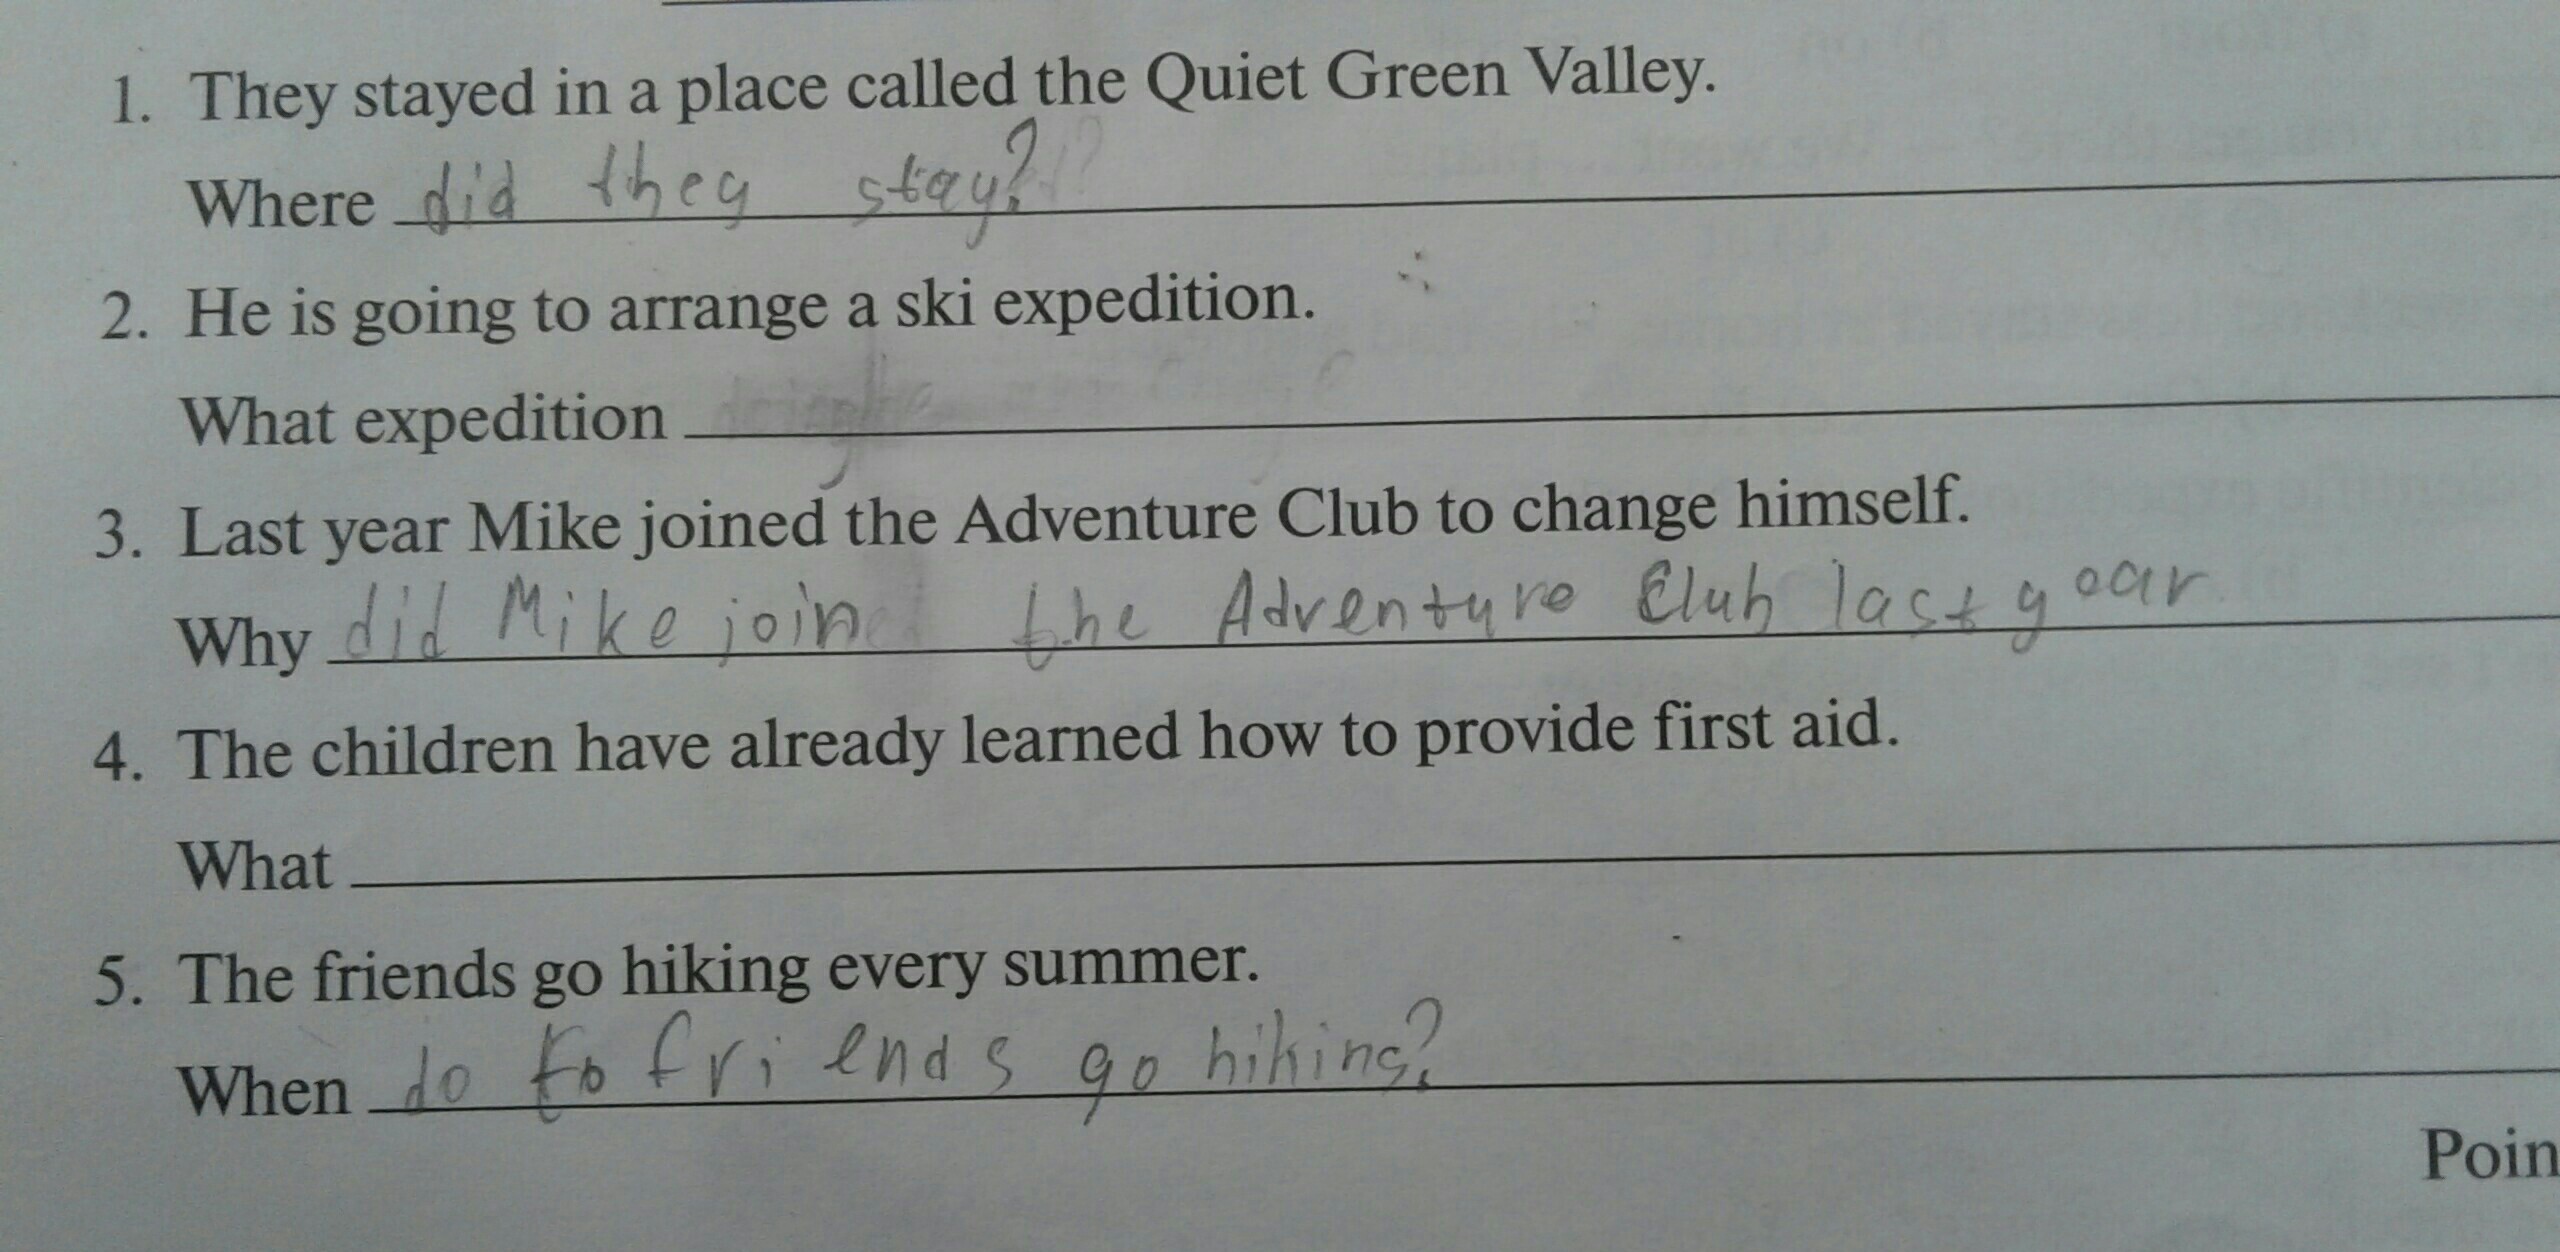 1. They stayed in a place called the Quiet Green Valley.
Where did they stay?
2. He is going to arrange a ski expedition.
What expedition
3. Last year Mike joined the Adventure Club to change himself.
Why did Mike join the Adventure Club last year
4. The children have already learned how to provide first aid.
What
5. The friends go hiking every summer.
When do friends go hiking?
Poin